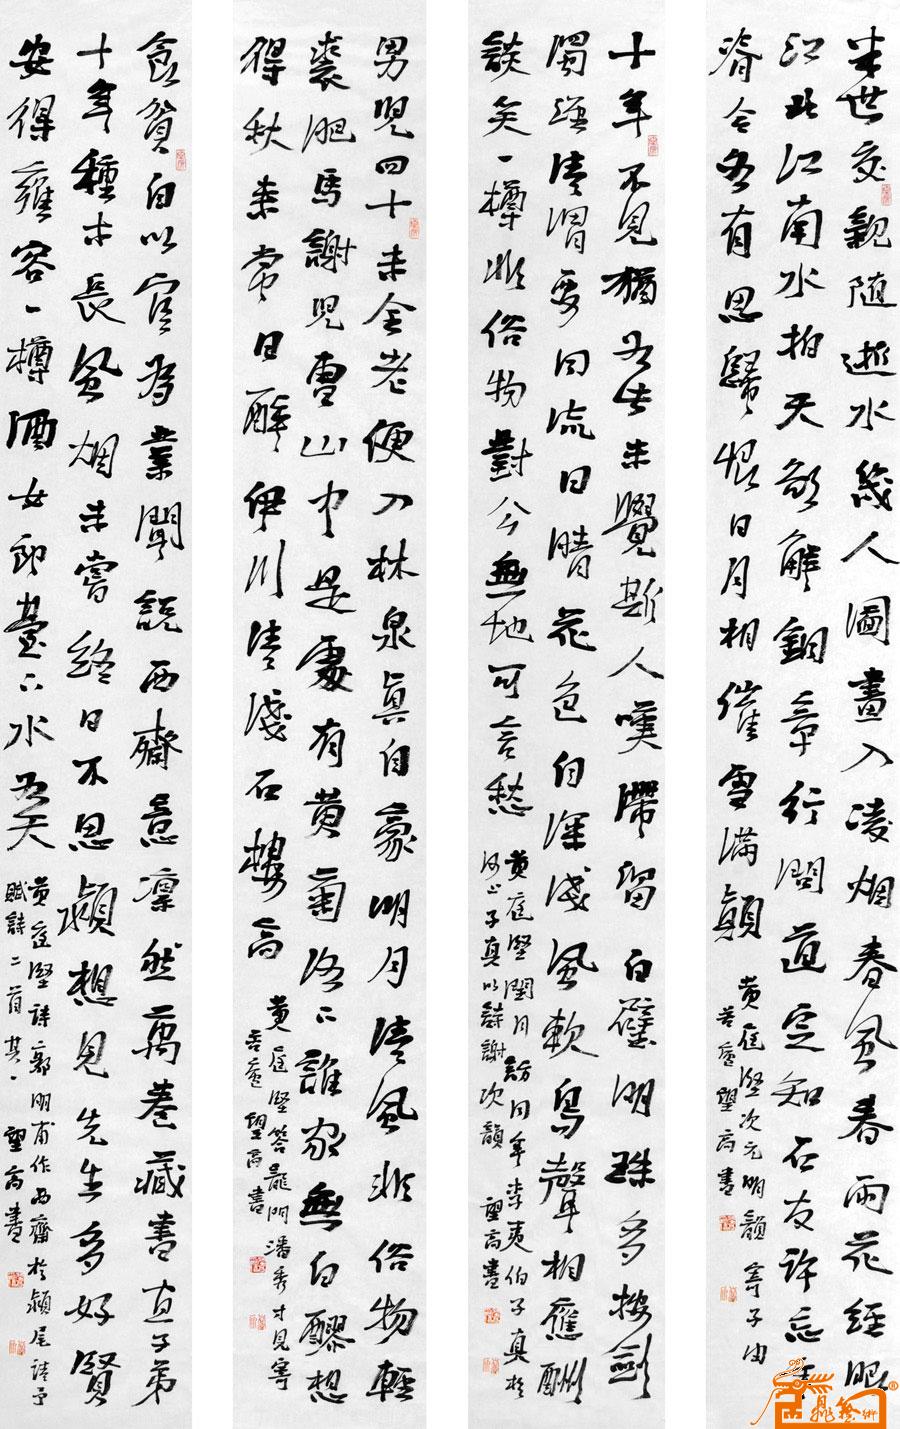 半世交親隨逝水幾人圖畫入凌烟春風春雨花經眼
江北江南水拍天欲解銅章行問道定知石友許忘年
脊令各有思歸恨日月相催雪滿顛
黄庭堅次元明韻寄子由
望高書
十年不見猶如此未覺斯人嘆滯留白璧明珠多按劍
濁涇清渭要同流日晴花色自深淺風軟鳥聲相應酬
談笑一樽非俗物對公無地可言愁
黄庭堅閏月訪同年李夷伯子真於
河上子真以詩謝次韻 望高書
男兒四十未全老便入林泉真自豪明月清風非俗物輕
裘肥馬謝兒曹山中是處有黄菊洛下誰家無白醪想
得秋來常日醉伊川清淺石樓高
黄庭堅答龍門潘秀才見寄
望高書
食貧自以官為業聞說西齋意凛然萬卷藏書宜子弟
十年種木長風烟未嘗終日不思潁想見先生多好賢
安得雍容一樽酒女郎臺下水如天
黄庭堅詩郭明甫作西齋於潁尾請予
賦詩二首其一 望高書